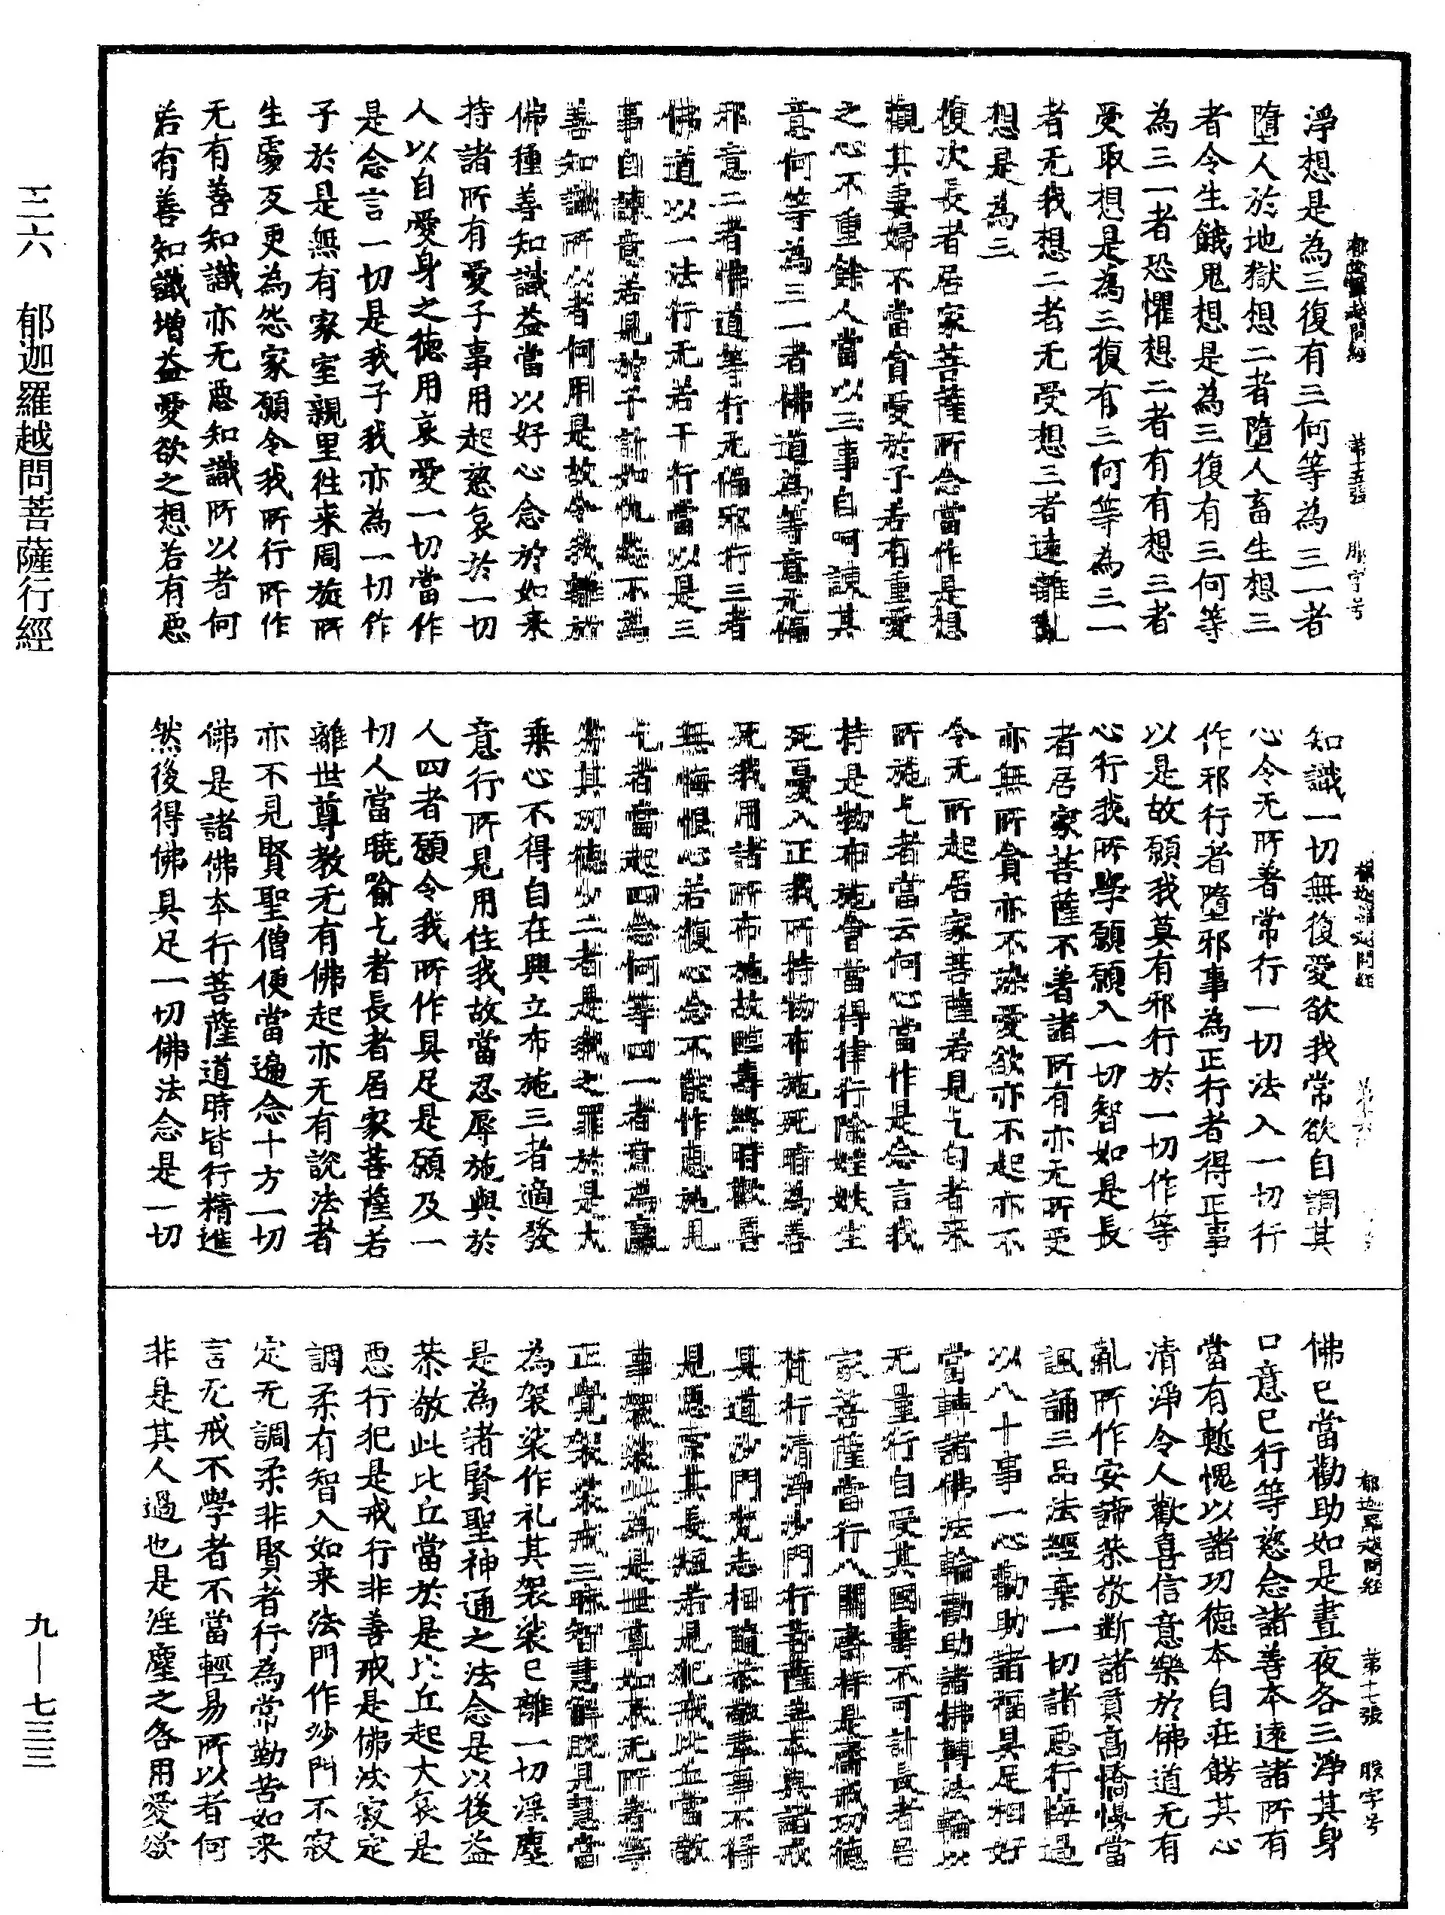 三六　郁迦羅越問菩薩行經
九—七三三
郁迦羅越問經　第十五張　股字号
淨想是為三復有三何等為三一者
墮人於地獄想二者墮人畜生想三
者令生餓鬼想是為三復有三何等
為三一者恐懼想二者有有想三者
受取想是為三復有三何等為三一
者无我想二者无受想三者遠離亂
想是為三
復次長者居家菩薩所念當作是想
觀其妻婦不當貪愛於子若有重愛
之心不重餘人當以三事自呵諫其
意何等為三一者佛道為等意无偏
邪意二者佛道等行无偏邪行三者
佛道以一法行无若干行當以是三
事自諫意若見於子計如仇怨不為
善知識所以者何用是故令我離於
佛種善知識益當以好心念於如来
持諸所有愛子事用起慈哀於一切
人以自愛身之德用哀愛一切當作
是念言一切是我子我亦為一切作
子於是無有家室親里往来周旋所
生處反更為怨家願令我所行所作
无有善知識亦无惡知識所以者何
若有善知識增益愛欲之想若有惡
知識一切無復愛欲我常欲自調其
心令无所著常行一切法入一切行
作邪行者墮邪事為正行者得正事
以是故願我莫有邪行於一切作等
心行我所學願願入一切智如是長
者居家菩薩不著諸所有亦无所受
亦無所貪亦不染愛欲亦不起亦不
令无所起居家菩薩若見乞匃者来
所施乞者當云何心當作是念言我
持是物布施會當得律行除婬妷生
死憂入正我所持物布施死時為善
死我用諸所布施故臨壽終時歡喜
無悔恨心若復心念不能作惠施見
乞者當起四念何等四一者身為羸
劣其功德少二者是我之罪於是大
乘心不得自在興立布施三者適發
意行所見用住我故當忍辱施與於
人四者願令我所作具足是願及一
切人當曉喻乞者長者居家菩薩若
離世尊教无有佛起亦无有說法者
亦不見賢聖僧便當遍念十方一切
佛是諸佛本行菩薩道時皆行精進
然後得佛具足一切佛法念是一切
郁迦羅越問經　第十七張　股字号
佛已當勸助如是晝夜各三淨其身
口意已行等慈念諸善本遠諸所有
當有慙愧以諸功德本自莊餝其心
清淨令人歡喜信意樂於佛道无有
亂所作安諦恭敬斷諸貢高憍慢當
諷誦三品法經棄一切諸惡行悔過
以八十事一心勸助諸福具足相好
當轉諸佛法輪勸助諸佛轉法輪以
无量行自受其國壽不可計長者居
家菩薩當行八關齋持是齋戒功德
梵行清淨沙門行菩薩半與諸戒
具道沙門梵志相隨恭敬事不得
見惡求其長短若見犯戒比丘當敬
事袈裟以為是世尊如来无所著等
正覺袈裟戒三昧智慧解脫見慧當
為袈裟作礼其袈裟已離一切淫塵
是為諸賢聖神通之法念是以後益
恭敬此比丘當於是比丘起大哀是
惡行犯是戒行非善戒是佛法寂定
調柔有智入如来法門作沙門不寂
定无調柔非賢者行為常勤苦如来
言无戒不學者不當輕易所以者何
非是其人過也是淫塵之咎用愛欲